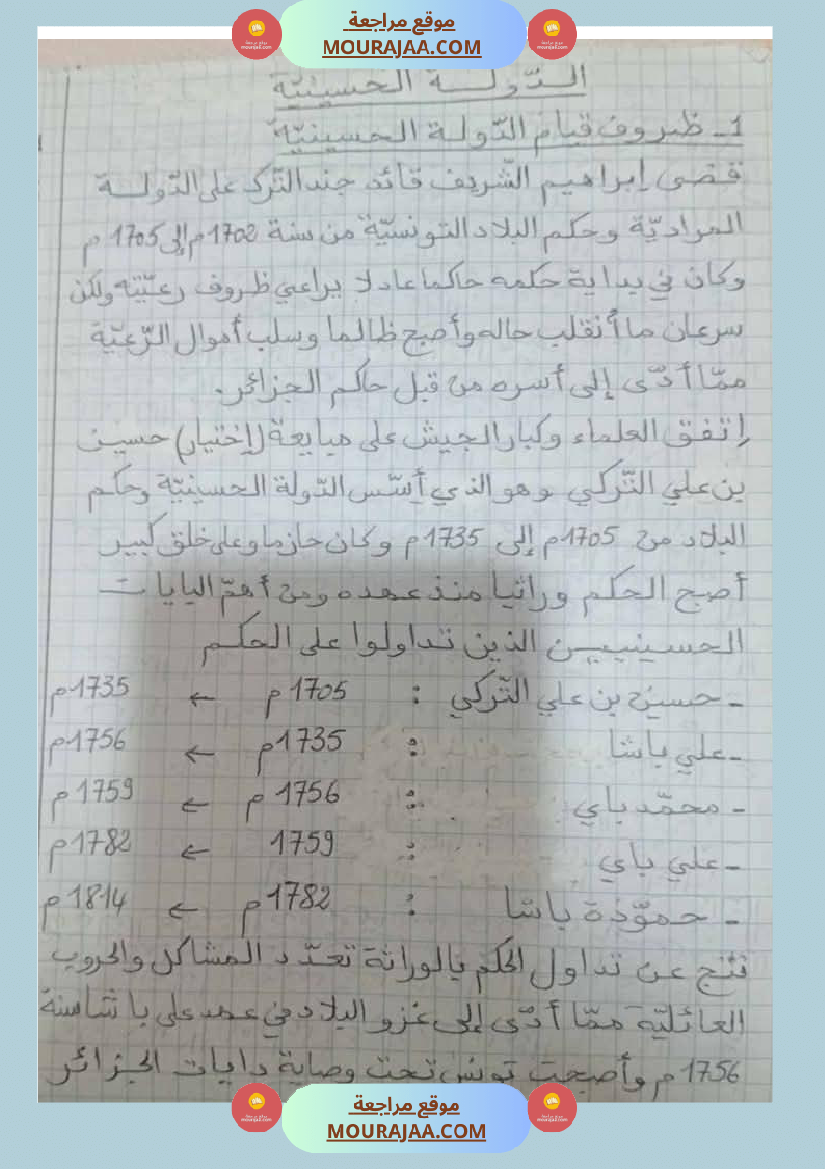 موقع مراجعة
MOURAJAA.COM
الدّولة الحسينيّة
1 - ظروف قيام الدّولة الحسينيّة
قضى إبراهيم الشّريف قائد جند التّرك على الدّولة
المراديّة وحكم البلاد التونسيّة من سنة 1702م إلى 1705م
وكان في بداية حكمه حاكما عادلا يراعي ظروف رعيّته ولكن
سرعان ما أنقلب حاله وأصبح ظالما وسلب أموال الرّعيّة
ممّا أدّى إلى أسره من قبل حاكم الجزائر.
إتفق العلماء وكبار الجيش على مبايعة (إختيار) حسين
بن علي التّركي وهو الذي أسّس الدّولة الحسينيّة وحكم
البلاد من 1705م إلى 1735م وكان حازما وعلى خلق كبير
أصبح الحكم وراثيا منذ عهده ومن أهمّ البايات
الحسينيين الذين تداولوا على الحكم
- حسين بن علي التّركي : 1705م ← 1735م
- علي باشا : 1735م ← 1756م
- محمّد باي : 1756م ← 1759م
- علي باي : 1759 ← 1782م
- حمّودة باشا : 1782م ← 1814م
نتج عن تداول الحكم بالوراثة تعدّد المشاكل والحروب
العائليّة ممّا أدّى إلى غزو البلاد في عهد علي باشا سنة
1756م وأصبحت تونس تحت وصاية دايات الجزائر
موقع مراجعة
MOURAJAA.COM